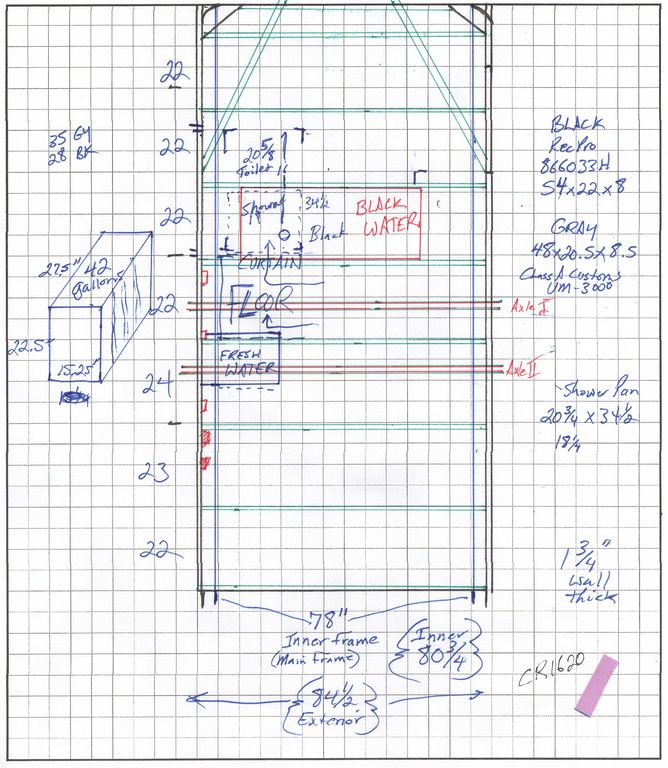 22
35 GY
28 BK
22
20 5/8
Toilet
BLACK
RecPro
866033H
54x22x8
22
Shower
34 1/2
Black
BLACK
WATER
GRAY
48x20.5x8.5
Class A Customs
UM-3000
CURTAIN
27.5"
42
gallons
22
FLOOR
Axle I
22.5"
15.25"
FRESH
WATER
Axle II
24
Shower Pan
20 3/4 X 34 1/2
18 1/4
23
22
1 3/4"
wall
thick
78"
Inner frame
(Main Frame)
(Inner)
80 3/4
84 1/2
Exterior
CR1620